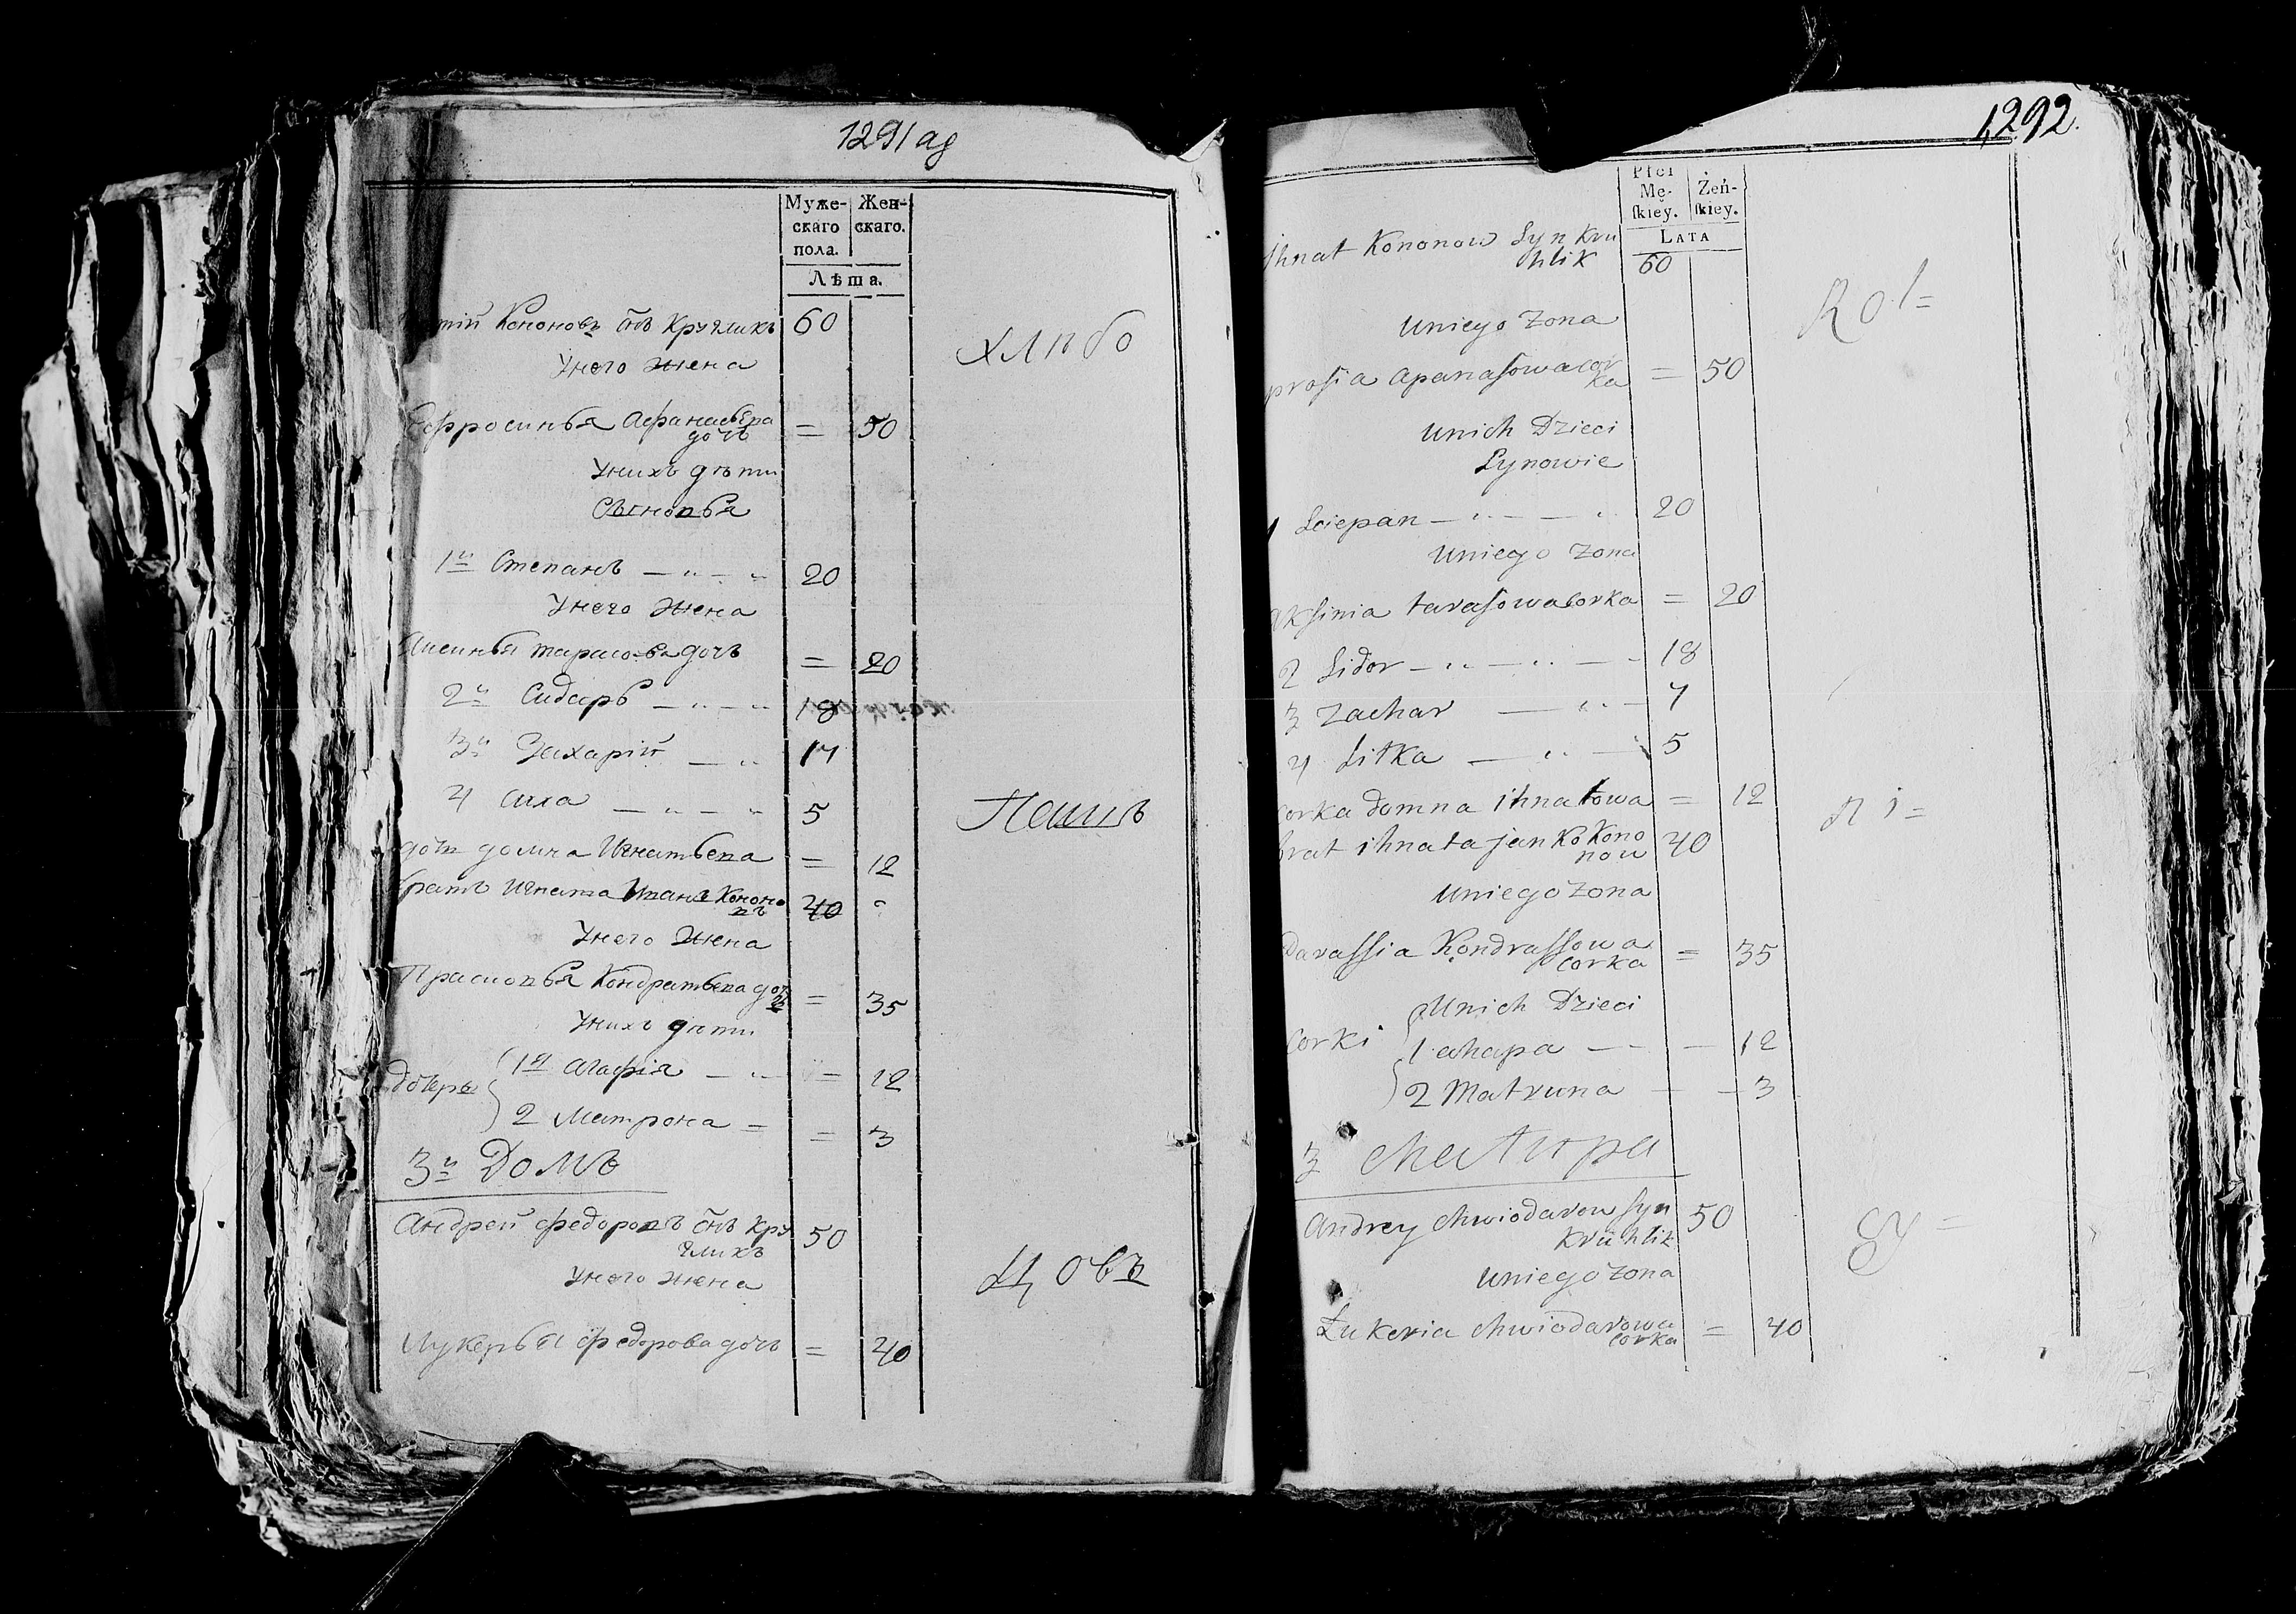 1291 ag
Муже-
скаго
пола.
Жен-
скаго.
Лѣта.
Кононовъ снъ Кругликъ 60
Унего жена
Ефросинья Афанасьева
дочь = 50
Унихъ дѣти
Сыновья
1й Степанъ — „ — „ 20
Унего жена
Аксинья тарасова дочь = 20
2й Сидоръ — „ — „ 18
3й Захарій — „
4 — „ — „ 5
дочь домна Игнатьева = 12
братъ Игната Иванъ Кононо
въ 40
Унего жена
Прасковья Кондратьева доч
ь = 35
Унихъ дѣти
дочери 1я Агафія — „ — = 12
2 Матрона = = 3
3й Домъ
Андрей федоровъ снъ Кру
гликъ 50
Унего жена
Лукерья федорова дочь = 40
хлибо
Пашъ
цовъ
1,292.
Płci
Mę-
ſkiey.
Żeń-
ſkiey.
LATA
Ihnat Kononow Syn Kru
hlik 60
Uniego Zona
prosia apanasowa cor
ka = 50
Unich Dzieci
Synowie
1 Sciepan — „ — — „ 20
Uniego Zona
aksinia tarasowa Corka = 20
2 Sidor — „ — „ — 18
3 Zachar — „ — 7
4 Sitka — „ — 5
Corka domna ihnatowa = 12
brat ihnata janko Kono
now 40
Uniego Zona
Parassia Kondrassowa
Corka = 35
Unich Dzieci
Corki 1 ahapa — — — 12
2 Matruna — — 3
3 Chatupa
Andrey Chwiodarow Syn
Kruhlik 50
Uniego Zona
Łukeria Chwiodarowa
Corka = 40
Rol=
ni=
cy=